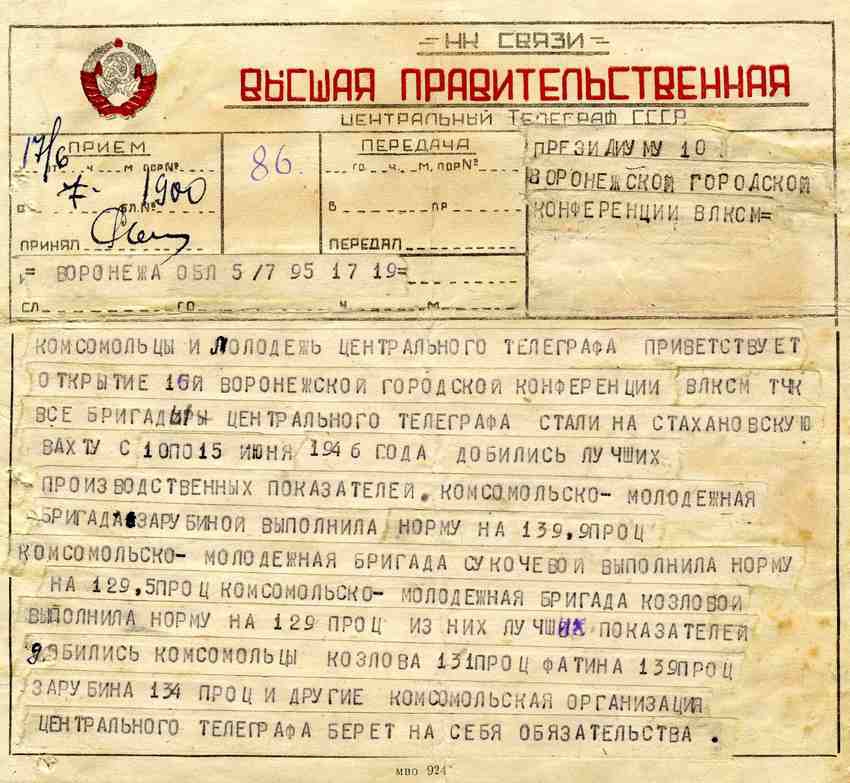 НК СВЯЗИ
ВЫСШАЯ ПРАВИТЕЛЬСТВЕННАЯ
ЦЕНТРАЛЬНЫЙ ТЕЛЕГРАФ СССР
17/6 ПРИЕМ
ГО Ч М ПОР№
7- 1900
В БЛ.№
ПРИНЯЛ
86.
ПЕРЕДАЧА
ГО Ч. М, ПОР№
В ПР
ПЕРЕДАЛ
ПРЕЗИДИУМУ 10
ВОРОНЕЖСКОЙ ГОРОДСКОЙ
КОНФЕРЕНЦИИ ВЛКСМ=
= ВОРОНЕЖА ОБЛ 5/7 95 17 19=
СЛ ГО Ч М
КОМСОМОЛЬЦЫ И МОЛОДЕЖЬ ЦЕНТРАЛЬНОГО ТЕЛЕГРАФА ПРИВЕТСТВУЕТ
ОТКРЫТИЕ 10Й ВОРОНЕЖСКОЙ ГОРОДСКОЙ КОНФЕРЕНЦИИ ВЛКСМ ТЧК
ВСЕ БРИГАДЫ ЦЕНТРАЛЬНОГО ТЕЛЕГРАФА СТАЛИ НА СТАХАНОВСКУЮ
ВАХТУ С 10ПО15 ИЮНЯ 1946 ГОДА ДОБИЛИСЬ ЛУЧШИХ
ПРОИЗВОДСТВЕННЫХ ПОКАЗАТЕЛЕЙ. КОМСОМОЛЬСКО- МОЛОДЕЖНАЯ
БРИГАДА ЗАРУБИНОЙ ВЫПОЛНИЛА НОРМУ НА 139,9ПРОЦ
КОМСОМОЛЬСКО- МОЛОДЕЖНАЯ БРИГАДА СУКОЧЕВОЙ ВЫПОЛНИЛА НОРМУ
НА 129,5ПРОЦ КОМСОМОЛЬСКО- МОЛОДЕЖНАЯ БРИГАДА КОЗЛОВОЙ
ВЫПОЛНИЛА НОРМУ НА 129 ПРОЦ ИЗ НИХ ЛУЧШИХ ПОКАЗАТЕЛЕЙ
ДОБИЛИСЬ КОМСОМОЛЬЦЫ КОЗЛОВА 131ПРОЦ ФАТИНА 139ПРОЦ
ЗАРУБИНА 134 ПРОЦ И ДРУГИЕ КОМСОМОЛЬСКАЯ ОРГАНИЗАЦИЯ
ЦЕНТРАЛЬНОГО ТЕЛЕГРАФА БЕРЕТ НА СЕБЯ ОБЯЗАТЕЛЬСТВА .
МВО 924